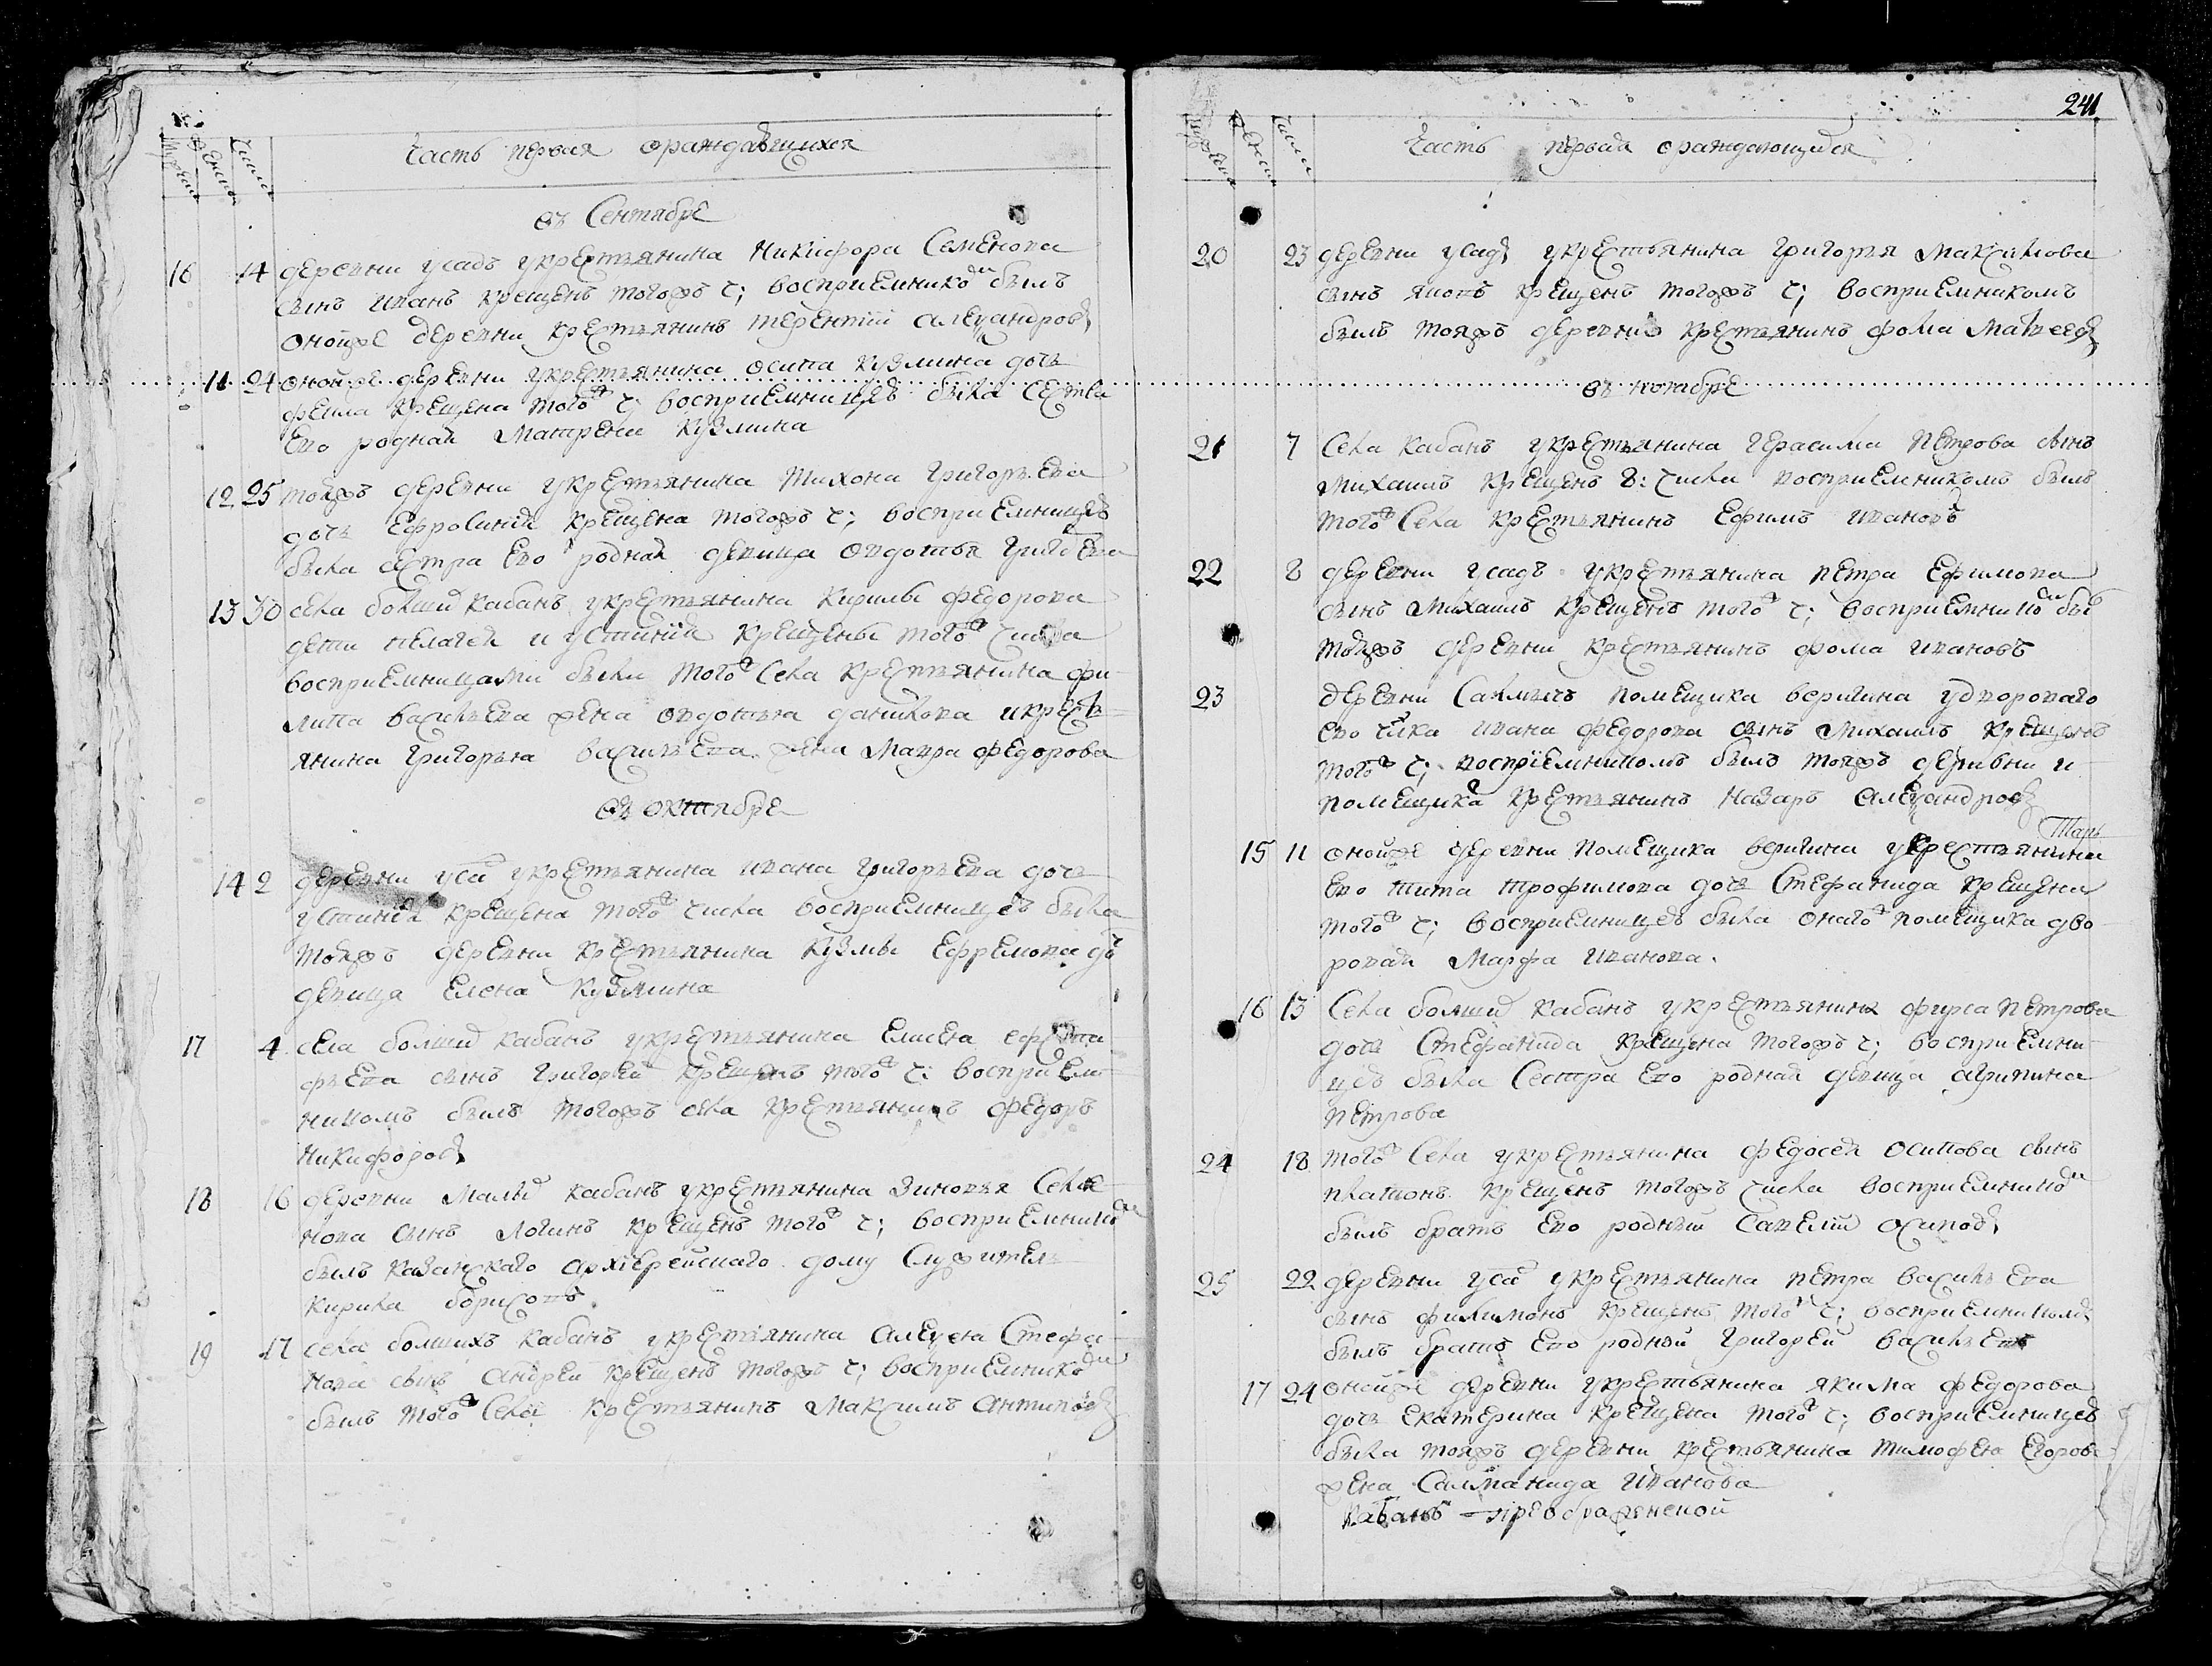 Часть первая ораждающихся
въ Сентябре
16 14 деревни усадъ укрестьянина Никифора Семенова
сынъ Иванъ крещенъ тогожъ ч; восприемникомъ былъ
онойже деревни крестьянинъ терентии алеѯандровъ
11 24 онойже деревни укрестьянина осипа кузмина дочь
крещена того ж ч; восприемницеи была сестра
ево родная Матрена кузмина
12 25 тойжъ деревни укрестьянина тихона григорьева
дочь Ефросинія крещена тогожъ ч; восприемницеи
была сестра ево родная девица овдотья григорева
13 30 села болшии кабанъ укрестьянина кирилы федорова
дети пелагея и устинія крещены того ж числа
восприемницами были того ж села крестьянина фи-
липа василъева жена овдотья данилова икресть-
янина григорья василъева жена Мавра федорова
въ октябре
14 2 деревни уса укрестьянина ивана григоръева дочь
устинія крещена того ж числа восприемницеи была
тойжъ деревни крестьянина кузмы ефремова дч
девица елена кузмина
17 4 села болшии кабанъ укрестьянина елисея
сынъ григореи крещенъ того ж ч; восприем-
никомъ былъ тогожъ села крестьянинъ федоръ
никифоровъ
18 16 деревни Малыи кабанъ укрестьянина Зиновья Селе-
нова сынъ логинъ крещенъ того ж ч; восприемником
былъ казанскаго архіерейскаго дому служитель
кирила борисовъ
19 17 села болшихъ кабанъ укрестьянина алеѯея Стефа-
нова сынъ андреи крещенъ тогожъ ч; восприемником
былъ того ж села крестьянинъ Маѯимъ антиповъ
241
Часть первая ораждающихся
20 23 деревни усадъ укрестьянина григорья Маѯимова
сынъ яковъ крещенъ тогожъ ч; восприемникомъ
былъ тояжъ деревни крестьянинъ фома Матвеевъ
въ ноябре
21 7 Села кабанъ укрестьянина герасима петрова сынъ
михаилъ крещенъ 8: числа восприемникомъ былъ
того ж Села крестьянинъ ефимъ ивановъ
22 8 деревни усадъ укрестьянина петра ефимова
сынъ михаилъ крещенъ того ж ч; восприемником бы
тойжъ деревни крестьянинъ фома ивановъ
23 деревни помещика веригина удвороваго
ево члка ивана федорова сынъ михаилъ крещенъ
того ж ч; восприемникомъ былъ тояжъ деревни и
помещика крестьянинъ Назаръ алеѯандровъ
15 11 онойже деревни помещика веригина укрестьянина
ево тита трофимова дочь Стефанида крещена
того ж ч; восприемницеи была онаго ж помещика дво-
ровая Марфа иванова.
16 13 Села болшии кабанъ укрестьянина фирса петрова
дочь Стефанида крещена тогожъ ч; восприемни-
цеи была Сестра ево родная девица агрипина
петрова
24 18 того ж Села укрестьянина федосея осипова сынъ
платонъ крещенъ тогожъ числа восприемником
былъ братъ ево родныи Савелии осиповъ
25 22 деревни уса укрестьянина петра василъева
сынъ филимонъ крещенъ того ж ч; восприемникомъ
былъ братъ ево родныи григореи василъевъ
17 24 онойже деревни укрестьянина якима федорова
дочь екатерина крещена того ж ч; восприемницеи
была тояжъ деревни крестьянина тимофея егорова
жена Саломанида иванова
кабанъ преображенской